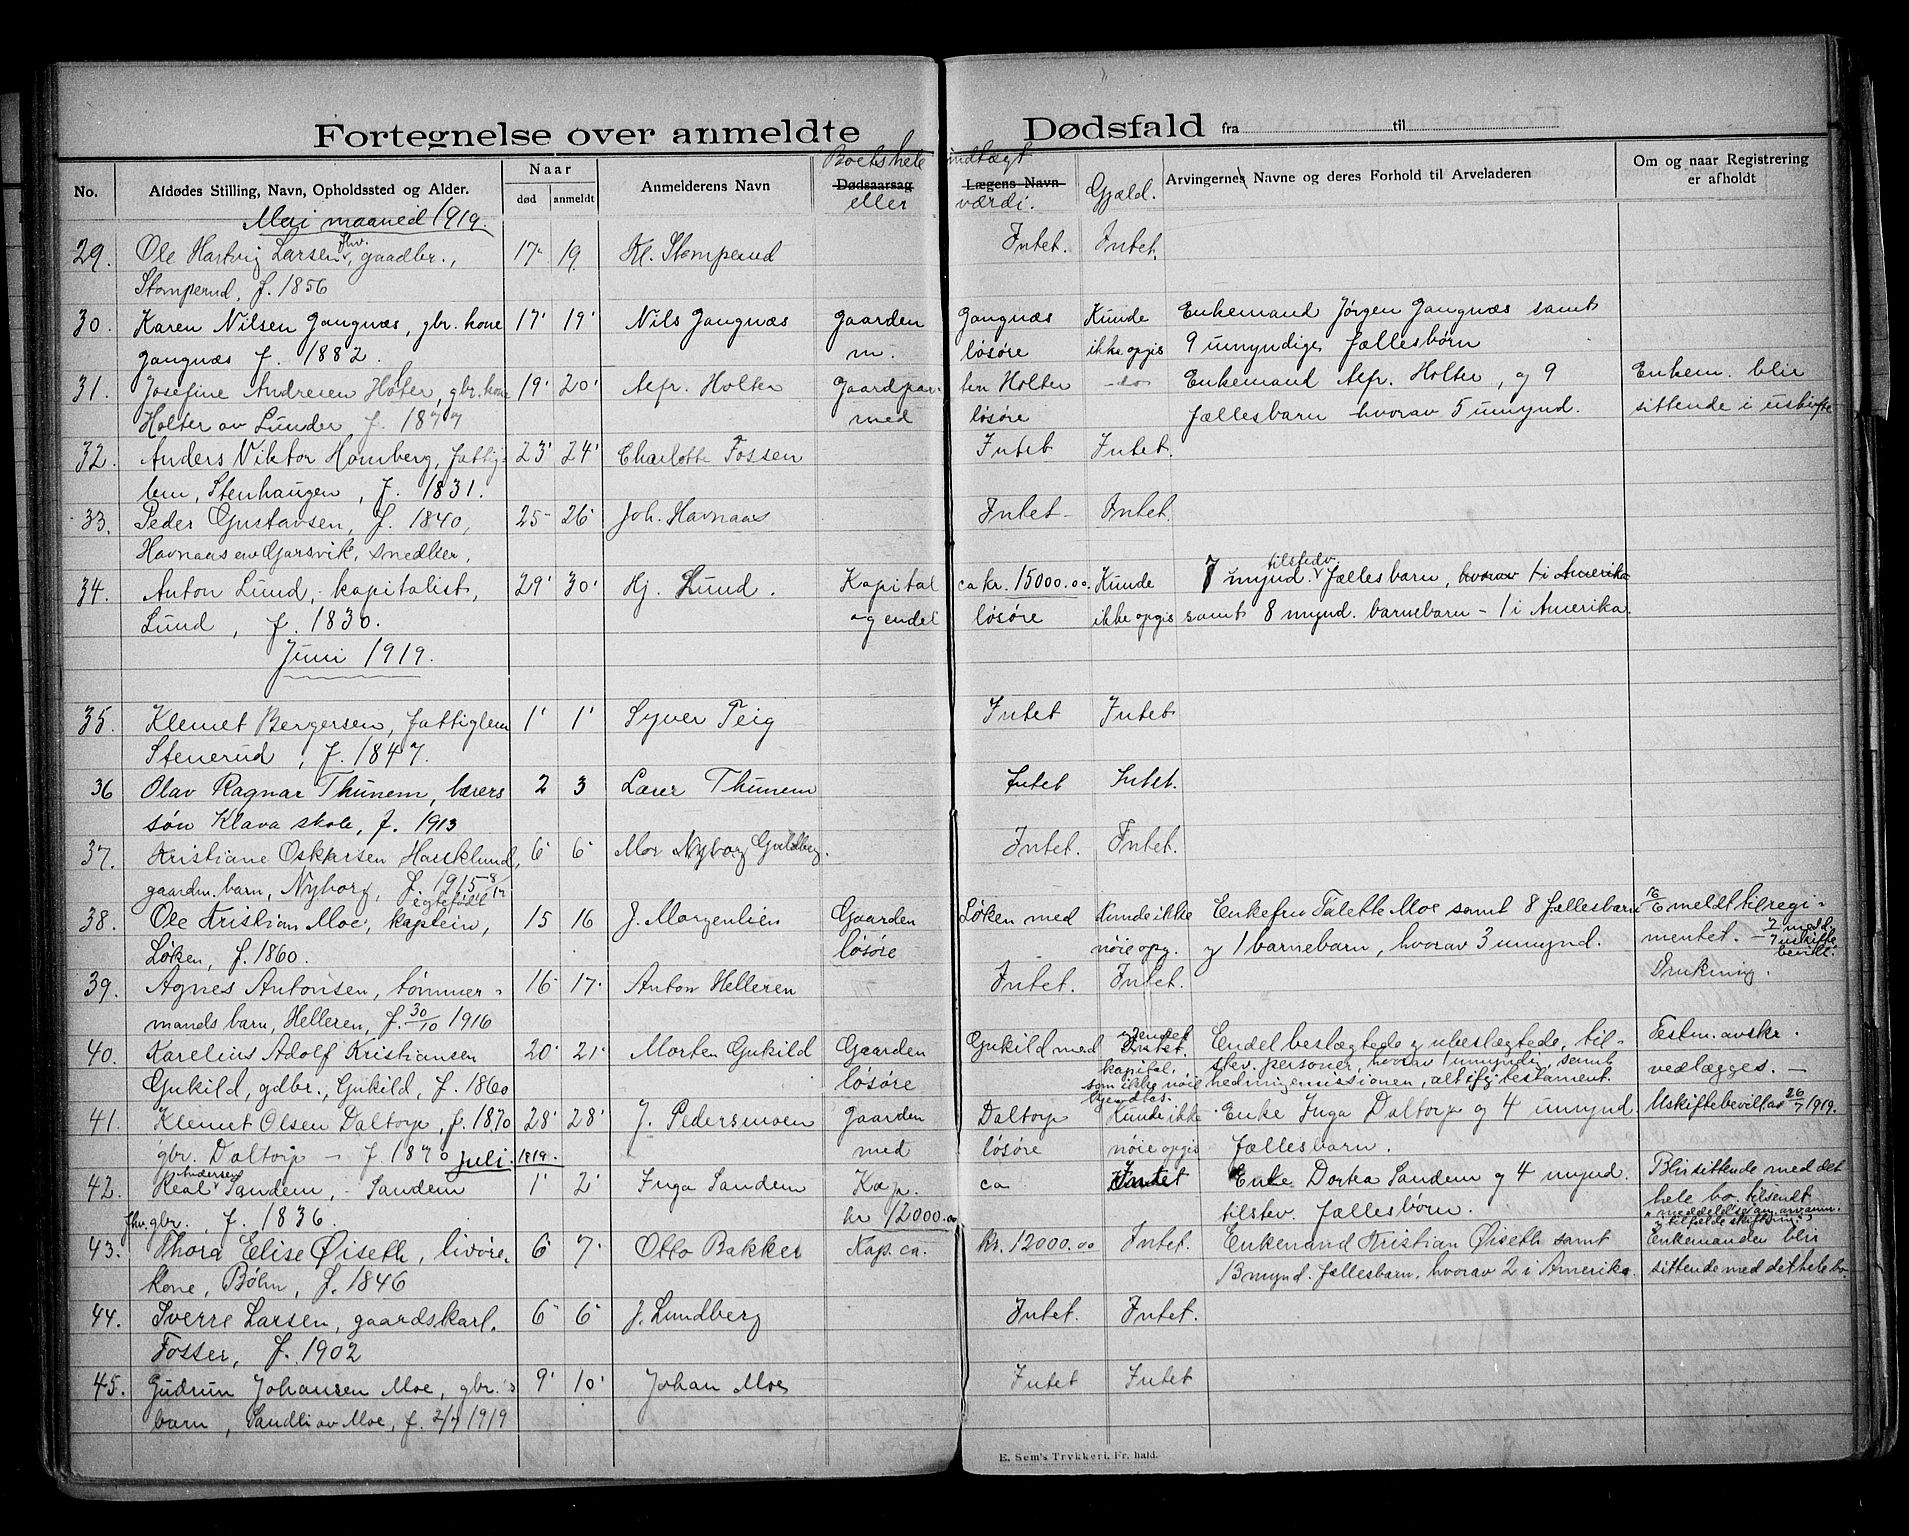 Fortegnelse over anmeldte Dødsfald fra til
Boets hele indtægt
No. Afdødes Stilling, Navn, Opholdssted og Alder. Naar død anmeldt Anmelderens Navn Dødsaarsag Lægens Navn Gjæld. Arvingernes Navne og deres Forhold til Arveladeren Om og naar Registrering er afholdt
eller værdi.
Mai maaned 1919.
29. Ole Hartvig Larsen, fhv. gaadbr., 17 19 Kl. Stomperud Intet. Intet.
Stomperud, f. 1856
30. Karen Nilsen Gangnæs, gbr. kone 17 19 Nils Gangnæs Gaarden Gangnæs Kunde Enkemand Jørgen Gangnæs samt
Gangnæs f. 1882. m. løsøre ikke opgis 9 umyndige fællesbørn
31. Josefine Andresen Holter, gbr. kone 19 20 Alfr. Holter Gaardpar- ten Holter do Enkemand Alfr. Holter, og 9 Enkem. blir
Holter av Lunder f. 1877 med løsøre fællesbarn hvorav 5 umynd. sittende i uskifte
32. Anders Viktor Homberg, fattig- 23 24 Charlotte Fossen Intet Intet.
lem, Stenhaugen, f. 1831.
33. Peder Gustavsen, f. 1840, 25 26 Joh. Havnaas Intet. Intet.
Havnaas av Garsvik, snedker,
34. Anton Lund, kapitalist, 29 30 Kj. Lund. Kapital ca kr. 15000.00 Kunde 7 mynd. tilstedv. fællesbarn, hvorav 1 i Amerika
Lund, f. 1836. og endel løsøre ikke opgis samt 8 mynd. barnebarn - 1 i Amerika.
Juni 1919.
35. Klemet Bergersen, fattiglem 1 1 Syver Teig Intet Intet
Stenerud, f. 1847.
36 Olav Ragnar Thunem, lærers 2 3 Lærer Thunem Intet Intet.
søn Klava skole, f. 1913
37. Kristiane Oskarsen Hauklund, 6 6 Mor Nyborg Guldberg. Intet. Intet.
gaardm. barn, Nyborg, f. 1915 8/12
egtefødt
38. Ole Kristian Moe, kaptein, 15 16 J. Morgenlien Gaarden Løken med Kunde ikke Enkefru Talette Moe samt 8 fællesbarn 16/6 meldt til regi-
Løken, f. 1860. løsøre nøie opg. og 1 barnebarn, hvorav 3 umynd. mentet. - 7 uskifte bevilt.
39. Agnes Antonsen, tømmer- 16 17 Anton Helleren Intet. Intet. Drukning.
mands barn, Helleren, f. 30/10 1916
40. Karelius Adolf Kristiansen 20 21 Morten Gukild Gaarden Gukild med Intet. Endel beslægtede og ubeslægtede, til- Testm. avskr.
Gukild, gdbr., Gukild, f. 1860 løsøre kapital, som ikke nøie stev. personer, hvorav 1 umyndig, samt hedningemissionen, alt ifg testament. vedlægges. -
41. Klemet Olsen Daltorp, f. 1870 28 28 J. Pedersmoen Gaarden Daltorp Kunde ikke Enke Inga Daltorp og 4 umynd. Uskiftebevilling 26/7 1919.
gbr. Daltorp - f. 1870 med løsøre nøie opgis fællesbarn.
Juli 1919.
42. Real Andersen Sandem, - Sandem 1 2 Inga Sandem Kap. ca Intet Enke Dorka Sandem og 4 mynd. Blir sittende med det
fhv. gbr. f. 1836. kr 12000.00 tilstev. fællesbørn. hele bo. tilsendt
43. Thora Elise Øiseth, livøre- 6 7 Otto Bakker Kap. ca. kr. 12000.00 Intet. Enkemand Kristian Øiseth samt Enkemanden blir
kone, Bøhn, f. 1846 13 mynd. fællesbarn, hvorav 2 i Amerika. sittende med det hele bo.
44. Sverre Larsen, gaardskarl. 6 6 J. Lundberg Intet. Intet.
Fosser, f. 1902
45. Gudrun Johansen Moe, gbr.'s 9 10 Johan Moe Intet Intet
barn, Sandli av Moe, f. 2/7 1919
E. Sem's Trykkeri, Fr. hald.